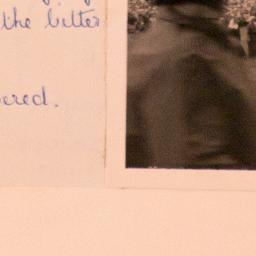 the bitter
ered.